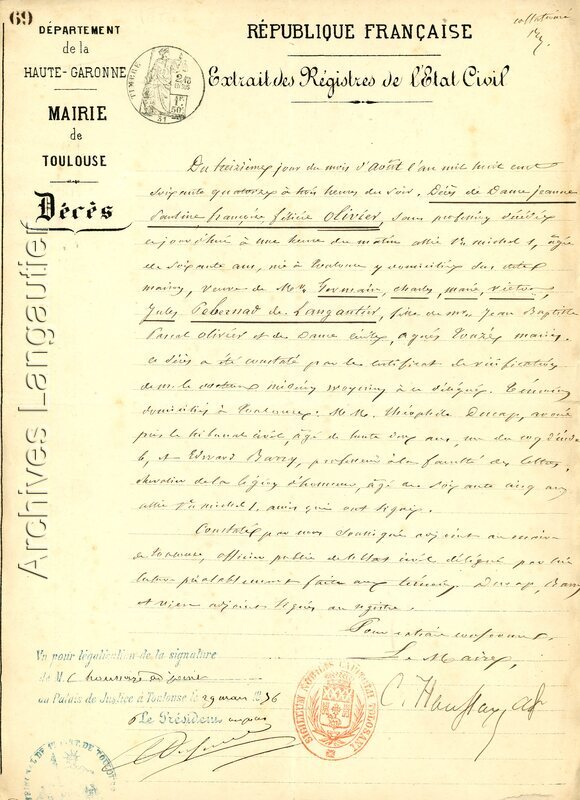 69
DÉPARTEMENT
de la
HAUTE-GARONNE
MAIRIE
de
TOULOUSE
Décès
RÉPUBLIQUE FRANÇAISE
Extrait des Régistres de l'Etat Civil
Du treizième jour du mois d'août l'an mil huit cent
soixante quatorze à trois heures du soir. Décès de Dame Jeanne
Pauline françoise félicie Olivier, sans profession décédée
aujourd'hui à une heure du matin allée St michel 1, âgée
de soixante ans, née à Toulouse y domiciliée
veuve de Mr Germain, charles, marie, victor,
Jules Pebernad de Langautier, fille de mr Jean Baptiste
Pascal Olivier et de Dame agnès mariés.
ce décès a été constaté par le certificat de vérification
de m. le docteur médecin à ce délégué. Témoins
domiciliés à Toulouse. M.M. Théophile Ducap, avoué
près le tribunal civil, âgé de trente deux ans, rue du coq d'inde
6, et Edward Barry, professeur à la faculté des lettres,
chevalier de la légion d'honneur, âgé de soixante cinq ans
allée St michel 1, ainsi que ont signé.
Constaté par nous soussigné adjoint au maire
de Toulouse, officier public de l'Etat civil, délégué par lui
lecture préalablement faite aux témoins. Ducap, Barry
et adjoint signés au registre.
Pour extrait conforme.
Le Maire,
C. Houssay, adj
Vu pour légalisation de la signature
de M. C houssaye adjoint
au Palais de Justice à Toulouse le 29 mars 1876
Le Président
TIMBRE
Archives Langautier